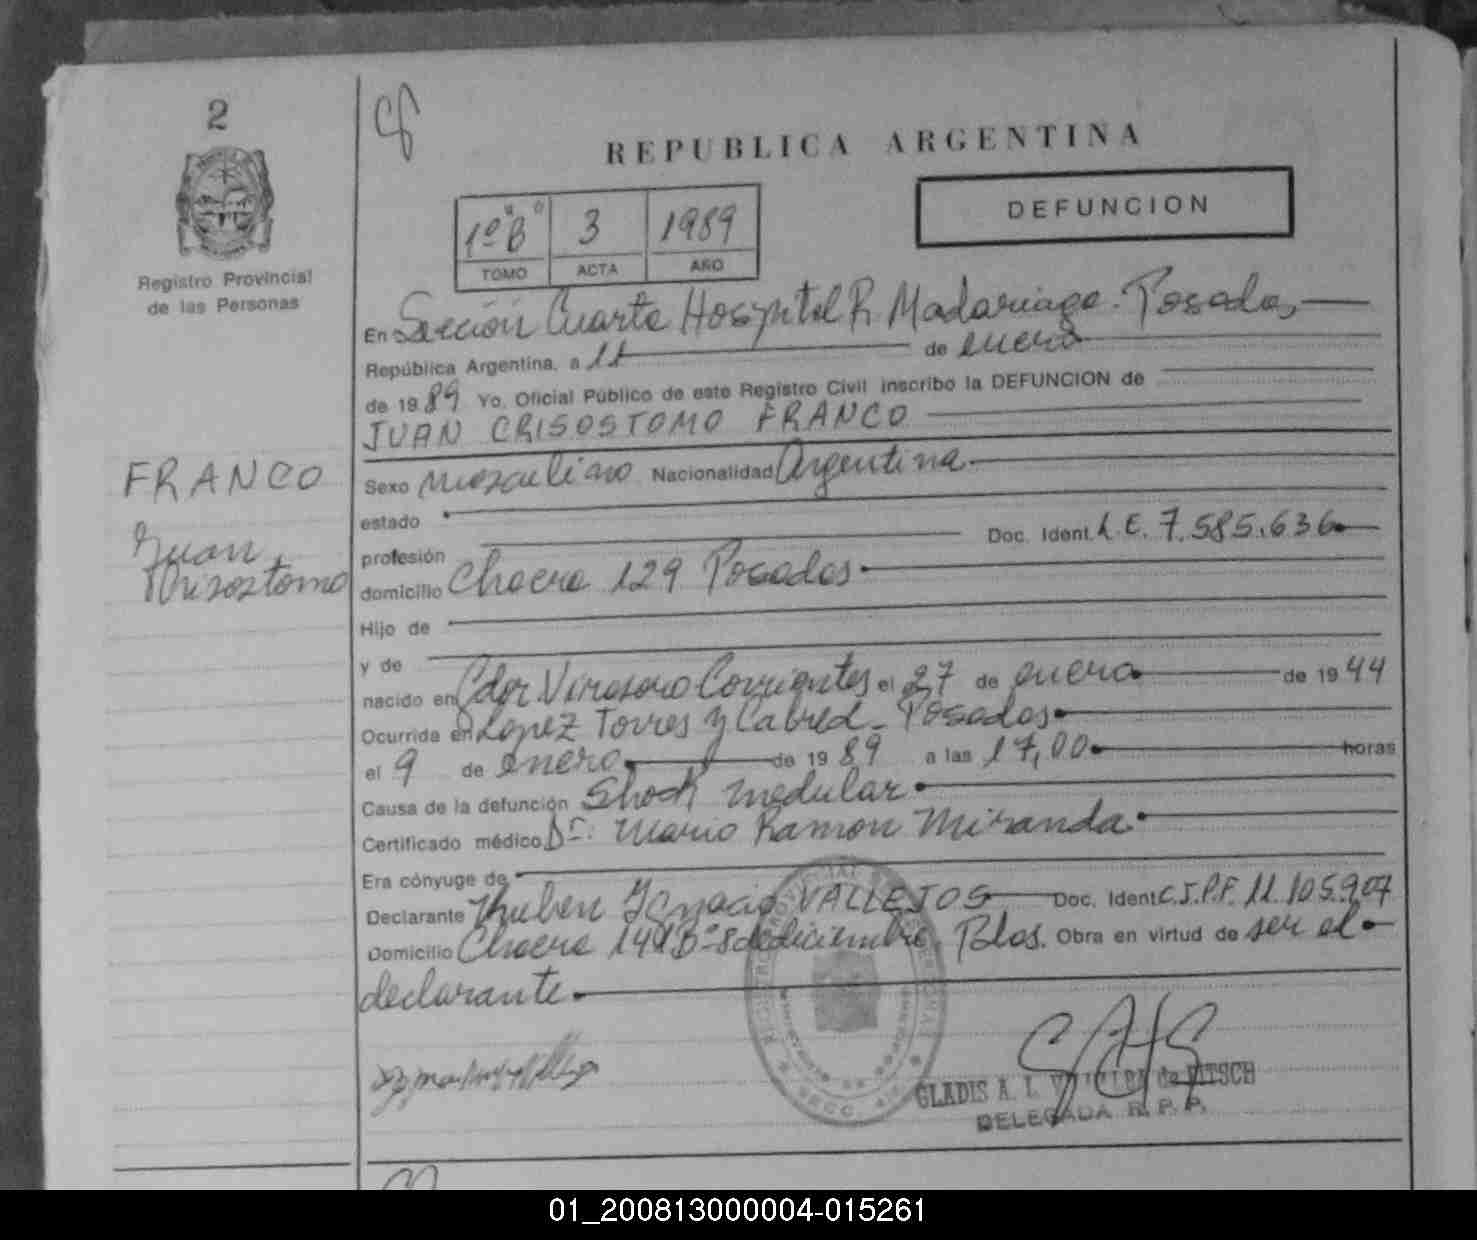 2
REPUBLICA ARGENTINA
DEFUNCION
1º "B" 3 1989
TOMO ACTA AÑO
Registro Provincial
de las Personas
En Sección Cuarta Hospital R. Madariaga. Posadas
República Argentina, a 11 de enero
de 1989 Yo, Oficial Público de este Registro Civil inscribo la DEFUNCION de
JUAN CRISOSTOMO FRANCO
FRANCO
Juan
Crisostomo
Sexo masculino Nacionalidad Argentina
estado
profesión Doc. Ident. L.E. 7.585.636
domicilio Chacra 129 Posadas
Hijo de
y de
nacido en Gdor Virasoro Corrientes el 27 de enero de 1944
Ocurrida en Lopez Torres y Cabred - Posadas
el 9 de enero de 1989 a las 17,00 horas
Causa de la defunción Shock medular
Certificado médico Dr. Mario Ramon Miranda
Era cónyuge de
Declarante Ruben Ignacio VALLEJOS Doc. Ident C.I.P.F. 11.105.907
Domicilio Chacra 141 Bº 8 de diciembre, Pdas. Obra en virtud de ser el
declarante
GLADIS A. I. de FITSCH
DELEGADA R. P. P.
01_200813000004-015261